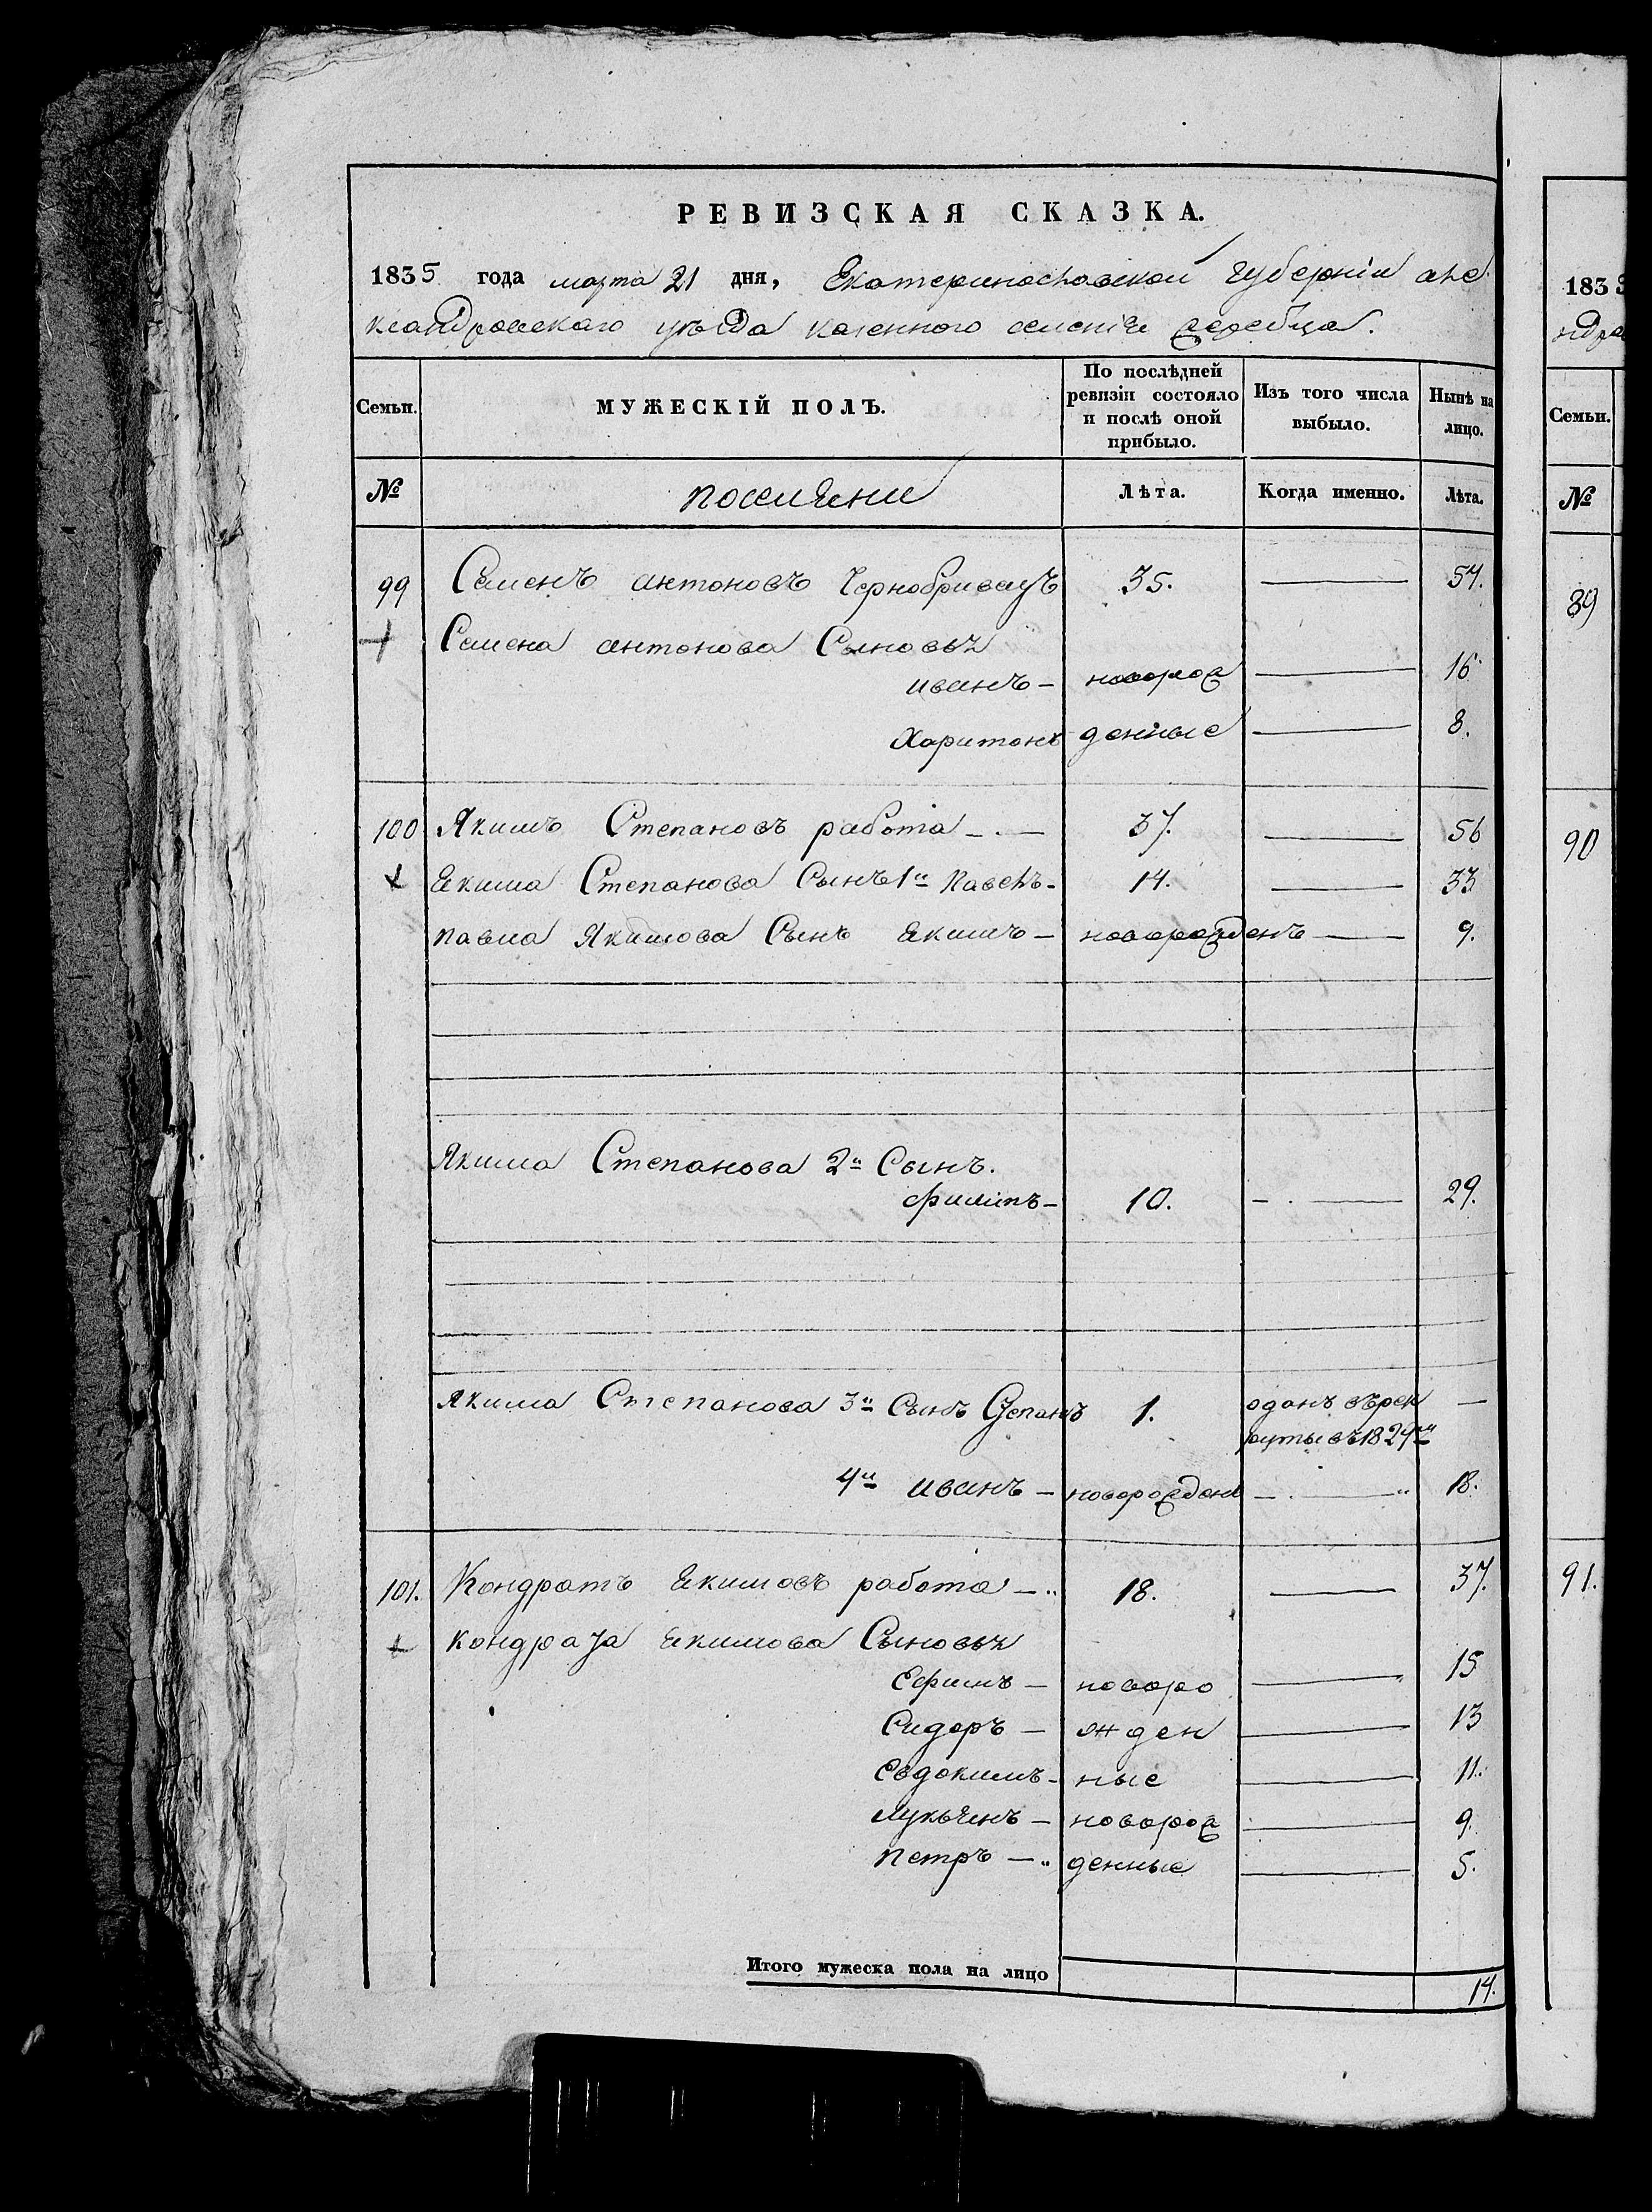 РЕВИЗСКАЯ СКАЗКА.
1835 года марта 21 дня, Екатеринославской губерніи але
ксандровскаго уѣзда казеннаго селенія жеребца.
Семьи. МУЖЕСКІЙ ПОЛЪ. По послѣдней ревизіи состояло и послѣ оной прибыло. Изъ того числа выбыло. Нынѣ на лицо.
№ поселяни Лѣта. Когда именно. Лѣта.
99 Семенъ антоновъ Чернобривецъ 35. — 57.
Семена антонова Сыновья
иванъ – новорож — 16
Харитонъ денные — 8.
100 Якимъ Степановъ работа – . — 37. — 56
Якима Степанова Сынъ 1й Павелъ – 14. — 33
павла Якимова Сынъ Якимъ – новорожденъ — 9.
Якима Степанова 2й Сынъ.
филипъ – 10. – . — 29.
Якима Степанова 3й Сынъ Степанъ 1. оданъ върек —
руты въ 1829м
4й иванъ – новорожденъ – . — 18.
101. Кондратъ Якимовъ работа – 18. — 37.
кондрата Якимова Сыновья
Ефимъ – новоро — 15
Сидоръ – жден — 13
Евдокимъ – ные — 11.
лукьянъ – новорож — 9.
петръ – денные — 5.
Итого мужеска пола на лицо 14.
183
ндра
Семьи.
№
89
90
91.